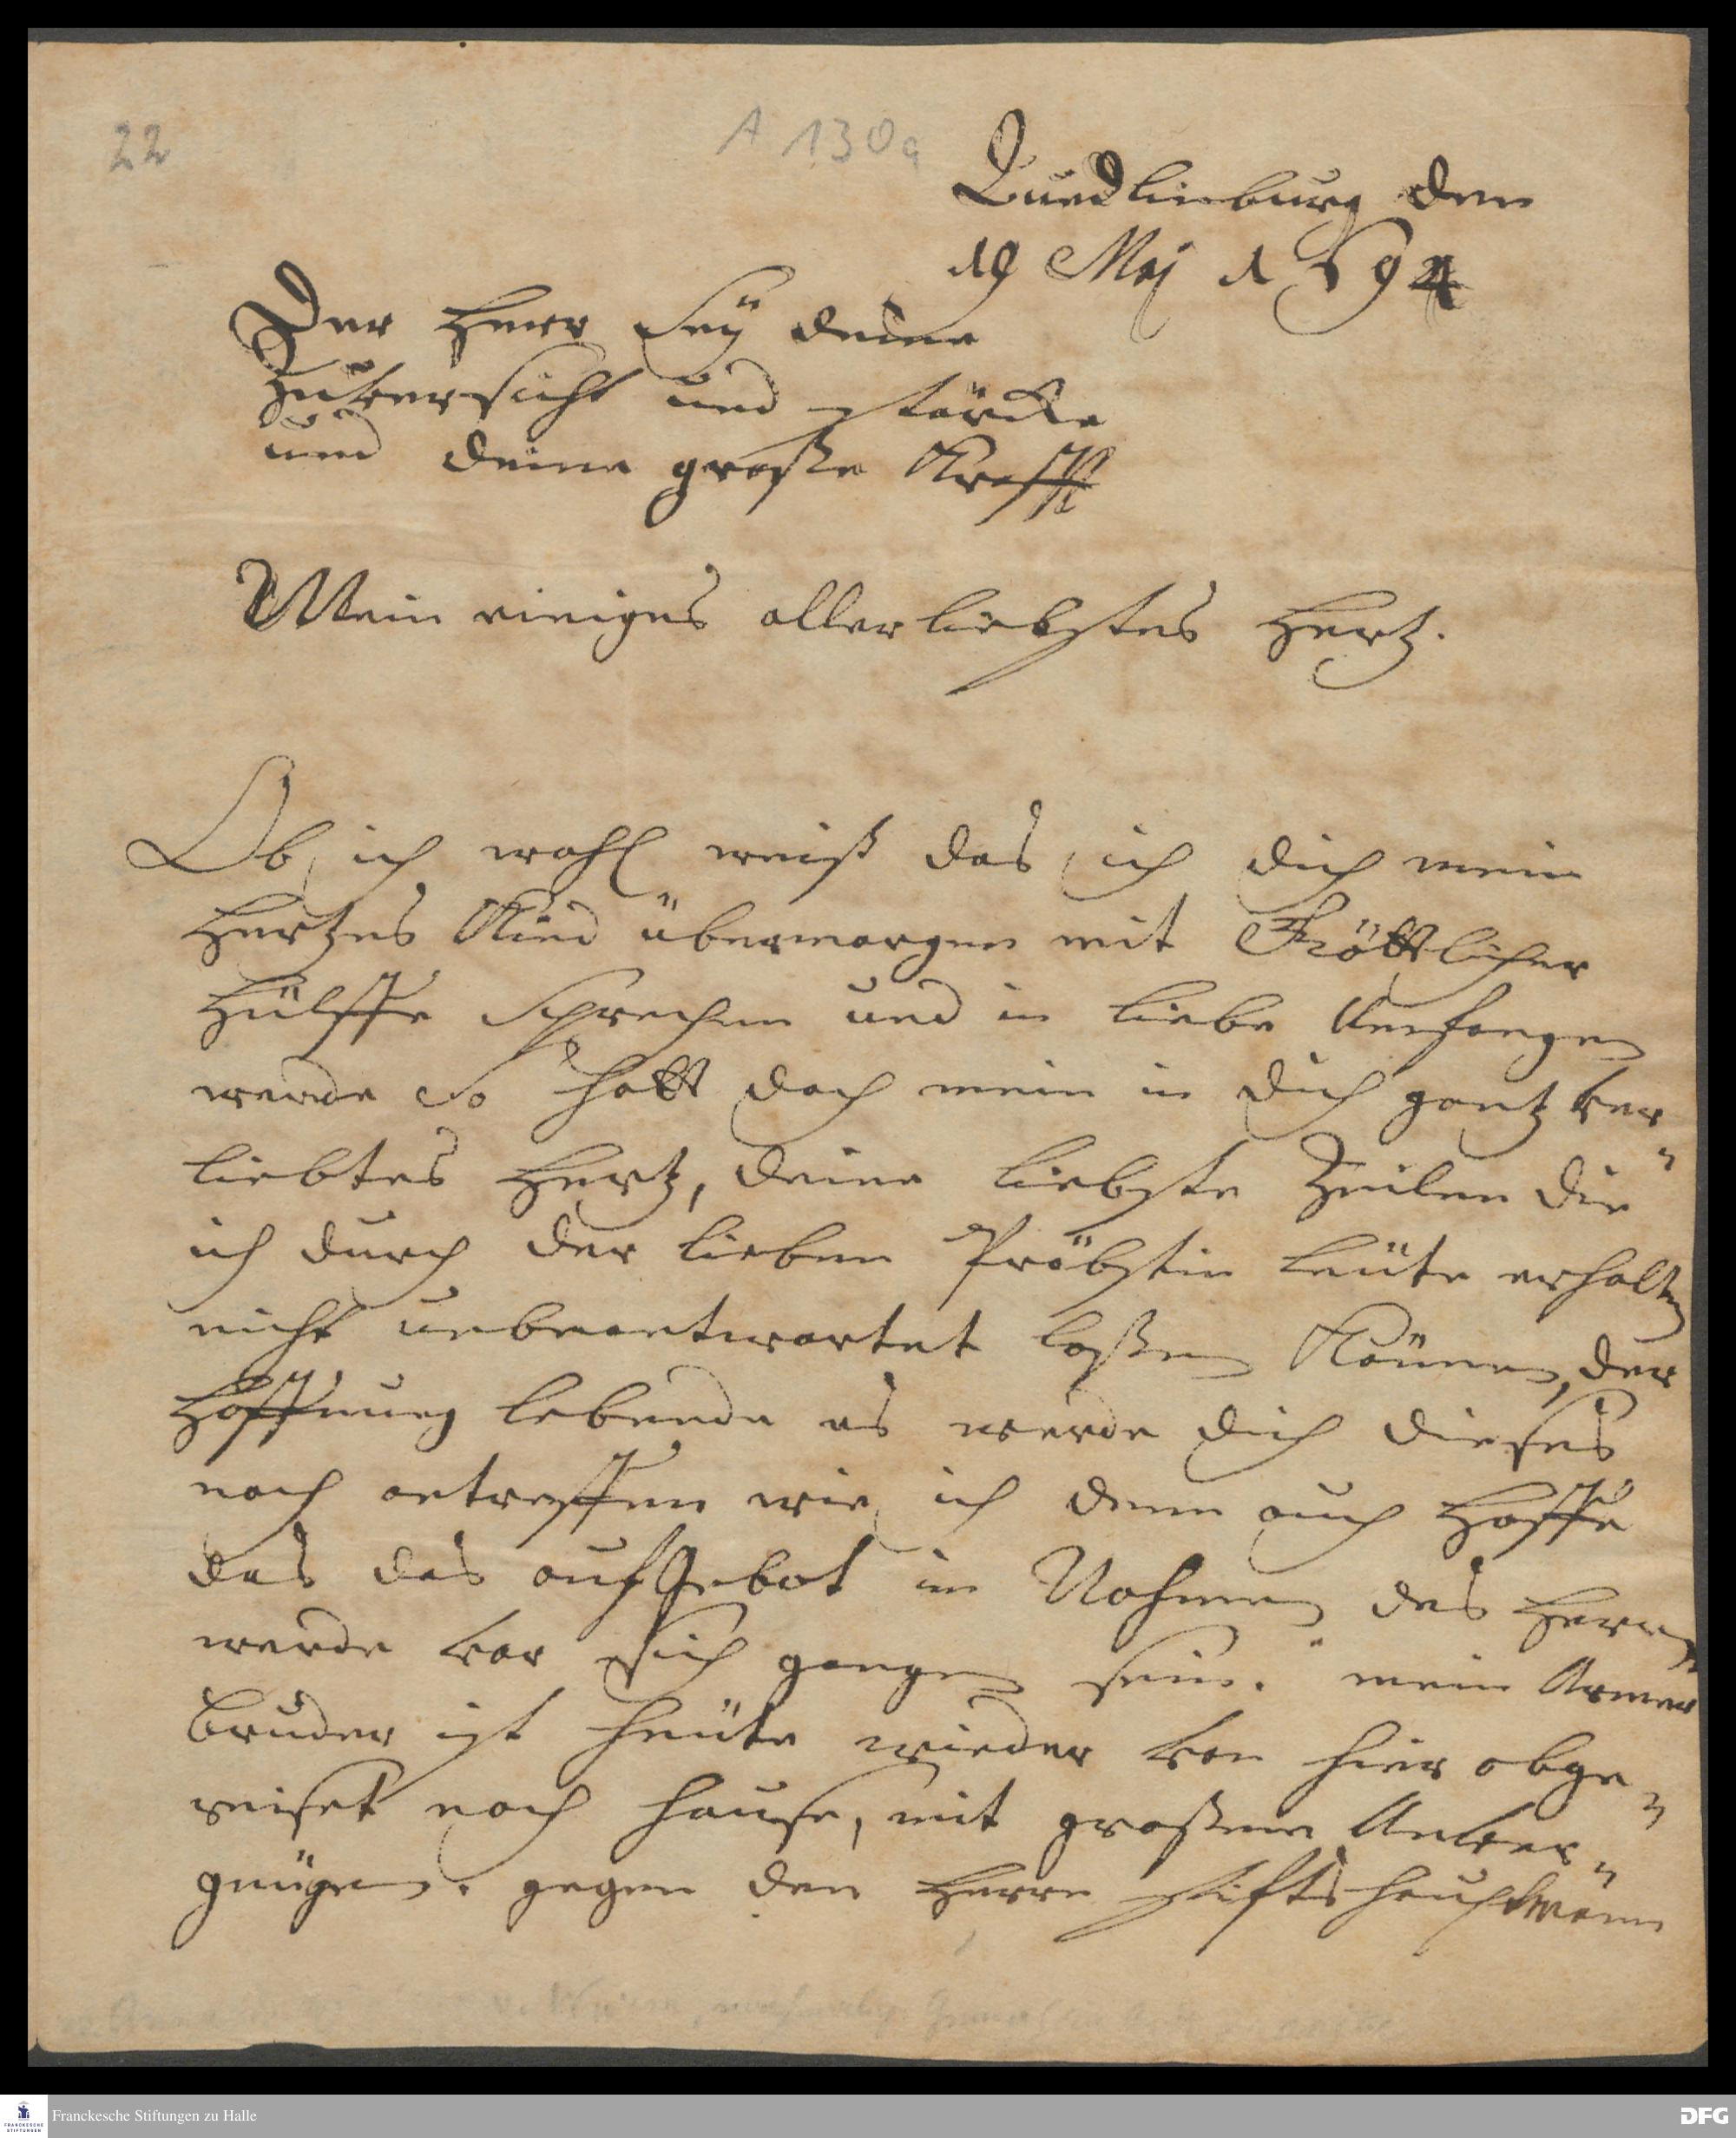 22
A 130a
Quedlinburg den
19 Maj 1694
Der Herr Seÿ deine
Zuversicht und stärcke
und deine große Krafft
Mein einiges allerliebstes Hertz.
Ob ich wohl weiß das ich dich mein
Hertzes Kind übermorgen mit Göttlicher
Hülffe Sprechen und in liebe Umfangen
werde So hatt doch mein in dich gantz ver
liebtes Hertz, deine liebste Zeilen die
ich durch der lieben Pröbstin leüte erhalten
nicht unbeantwortet laßen Können, der
Hoffnung lebende es werde dich dieses
noch antreffen wie ich denn auch Hoffe
das das aufgebot im Nahmen des Herrn
werde vor Sich gangen sein. mein Armer
bruder ist heüte wieder von hier abge
reiset nach hause, mit großem Unver
gnügen. gegen den Herrn stiftshauptmann
Franckesche Stiftungen zu Halle
FRANCKESCHE
STIFTUNGEN
DFG